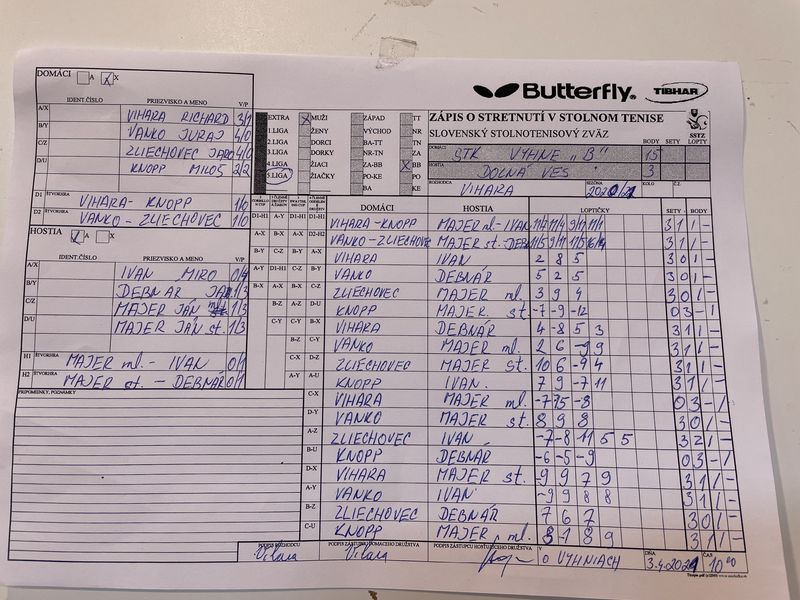 DOMÁCI A X
Butterfly. TIBHAR
IDENT.ČÍSLO PRIEZVISKO A MENO V/P
A/X VIHARA RICHARD 3/1
B/Y VANKO JURAJ 4/0
C/Z ZLIECHOVEC JARO 4/0
D/U KNOPP MILOŠ 2/2
D1 ŠTVORHRA VIHARA - KNOPP 1/0
D2 ŠTVORHRA VANKO - ZLIECHOVEC 1/0
HOSTIA A X
IDENT.ČÍSLO PRIEZVISKO A MENO V/P
A/X IVAN MIRO 0/4
B/Y DEBNÁR JÁN 1/3
C/Z MAJER JÁN ml. 1/3
D/U MAJER JÁN st. 1/3
H1 ŠTVORHRA MAJER ml. - IVAN 0/1
H2 ŠTVORHRA MAJER st. - DEBNÁR 0/1
PRIPOMIENKY, POZNÁMKY
EXTRA MUŽI ZÁPAD TT
1.LIGA ŽENY VÝCHOD NR
2.LIGA DORCI BA-TT TN
3.LIGA DORKY NR-TN ZA
4.LIGA ŽIACI ZA-BB BB
5.LIGA ŽIAČKY PO-KE PO
BA KE
ZÁPIS O STRETNUTÍ V STOLNOM TENISE
SLOVENSKÝ STOLNOTENISOVÝ ZVÄZ
SSTZ
BODY SETY LOPTY
DOMÁCI STK VYHNE "B" 15
HOSTIA DOLNÁ VES 3
ROZHODCA VIHARA SEZÓNA KOLO Č.Z.
DOMÁCI HOSTIA LOPTIČKY SETY - BODY
VIHARA-KNOPP MAJER ml-IVAN 11/4 11/4 9/11 11/1 3 1 1 -
VANKO-ZLIECHOVEC MAJER st.-DEBNÁR 11/5 9/11 11/5 16/14 3 1 1 -
VIHARA IVAN 2 8 5 3 0 1 -
VANKO DEBNÁR 5 2 5 3 0 1 -
ZLIECHOVEC MAJER ml. 3 9 4 3 0 1 -
KNOPP MAJER st. -7 -9 -12 0 3 - 1
VIHARA DEBNÁR 4 -8 5 3 3 1 1 -
VANKO MAJER ml. 2 6 -9 9 3 1 1 -
ZLIECHOVEC MAJER st. 10 6 -9 4 3 1 1 -
KNOPP IVAN 7 9 -7 11 3 1 1 -
VIHARA MAJER ml. -7 -15 -8 0 3 - 1
VANKO MAJER st. 8 9 8 3 0 1 -
ZLIECHOVEC IVAN -7 -8 11 5 5 3 2 1 -
KNOPP DEBNÁR -6 -5 -9 0 3 - 1
VIHARA MAJER st. -9 9 7 9 3 1 1 -
VANKO IVAN -9 9 8 8 3 1 1 -
ZLIECHOVEC DEBNÁR 7 6 7 3 0 1 -
KNOPP MAJER ml. 8 9 3 1 1 -
PODPIS ROZHODCU PODPIS ZÁSTUPCU DOMÁCEHO DRUŽSTVA PODPIS ZÁSTUPCU HOSŤUJÚCEHO DRUŽSTVA V DŇA ČAS
Vihara Vihara VYHNIACH 10 00